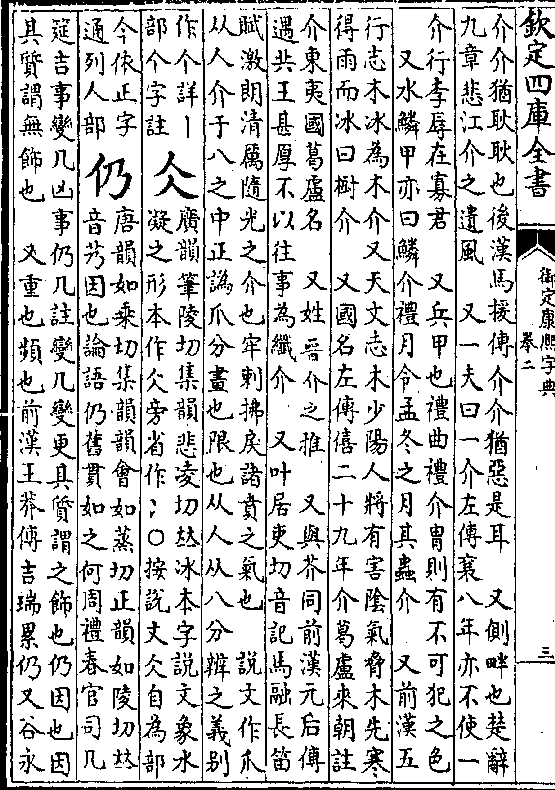 欽定四庫全書
御定康熙字典
卷二
三
介介猶耿耿也後漢馬援傳介介猶惡是耳　又側畔也楚辭
九章悲江介之遺風　又一夫曰一介左傳襄八年亦不使一
介行李辱在寡君　又兵甲也禮曲禮介冑則有不可犯之色
又水鱗甲亦曰鱗介禮月令孟冬之月其蟲介　又前漢五
行志木冰為木介又天文志木少陽人將有害陰氣脅木先寒
得雨而冰曰樹介　又國名左傳僖二十九年介葛盧來朝註
介東夷國葛盧名　又姓晉介之推　又與芥同前漢元后傳
遇共王甚厚不以往事為纖介　又叶居吏切音記馬融長笛
賦激朗清厲隨光之介也牢剌拂戾諸賁之氣也　說文作㕚
从人介于八之中正譌㕚分畫也限也从人从八分辨之義別
作个詳丨
部个字註
仌
廣韻筆陵切集韻悲凌切𠀤冰本字說文象水
凝之形本作仌旁省作冫○按說文仌自為部
今依正字
通列人部
仍
唐韻如乗切集韻韻會如蒸切正韻如陵切𠀤
音艿因也論語仍舊貫如之何周禮春官司几
筵吉事變几凶事仍几註變几變更其質謂之飾也仍因也因
其質謂無飾也　又重也頻也前漢王莽傳吉瑞累仍又谷永